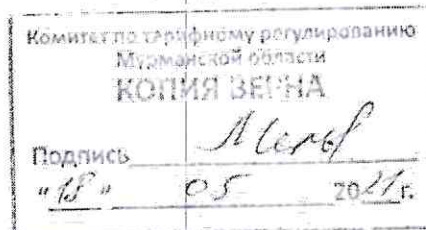 Комитет по тарифному регулированию
Мурманской области
КОПИЯ ВЕРНА
Подпись
"18" 05 2021 г.